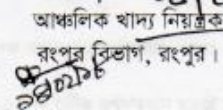 আঞ্চলিক খাদ্য নিয়ন্ত্রক
রংপুর বিভাগ, রংপুর।